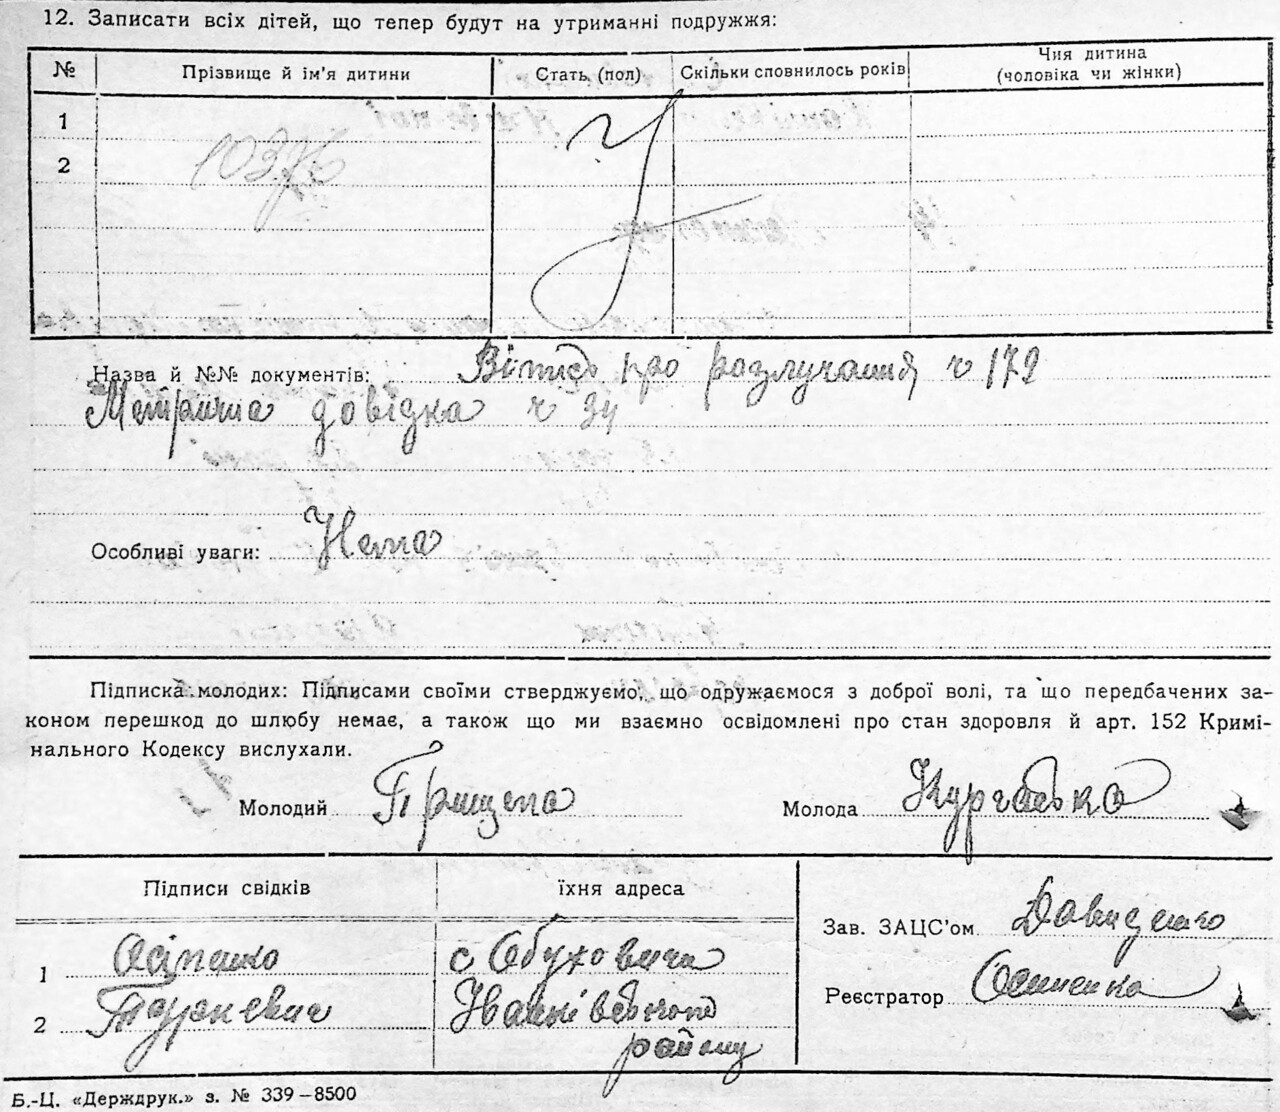 12. Записати всіх дітей, що тепер будут на утриманні подружжя:
№ Прізвище й ім'я дитини Стать (пол) Скільки сповнилось років Чия дитина
(чоловіка чи жінки)
1
2
Назва й №№ документів: Вітпсь про разлучання ч 179
Метрична довідка ч 34
Особливі уваги: Нема
Підписка молодих: Підписами своїми стверджуємо, що одружаємося з доброї волі, та що передбачених за-
коном перешкод до шлюбу немає, а також що ми взаємно освідомлені про стан здоровля й арт. 152 Кримі-
нального Кодексу вислухали.
Молодий Прищепа Молода
Підписи свідків їхня адреса
Зав. ЗАЦС'ом Давиденко
1 Осіпенко с Обуховичи
Реєстратор Осипенко
2 Іванківського
району
Б.-Ц. «Держдрук.» з. № 339–8500